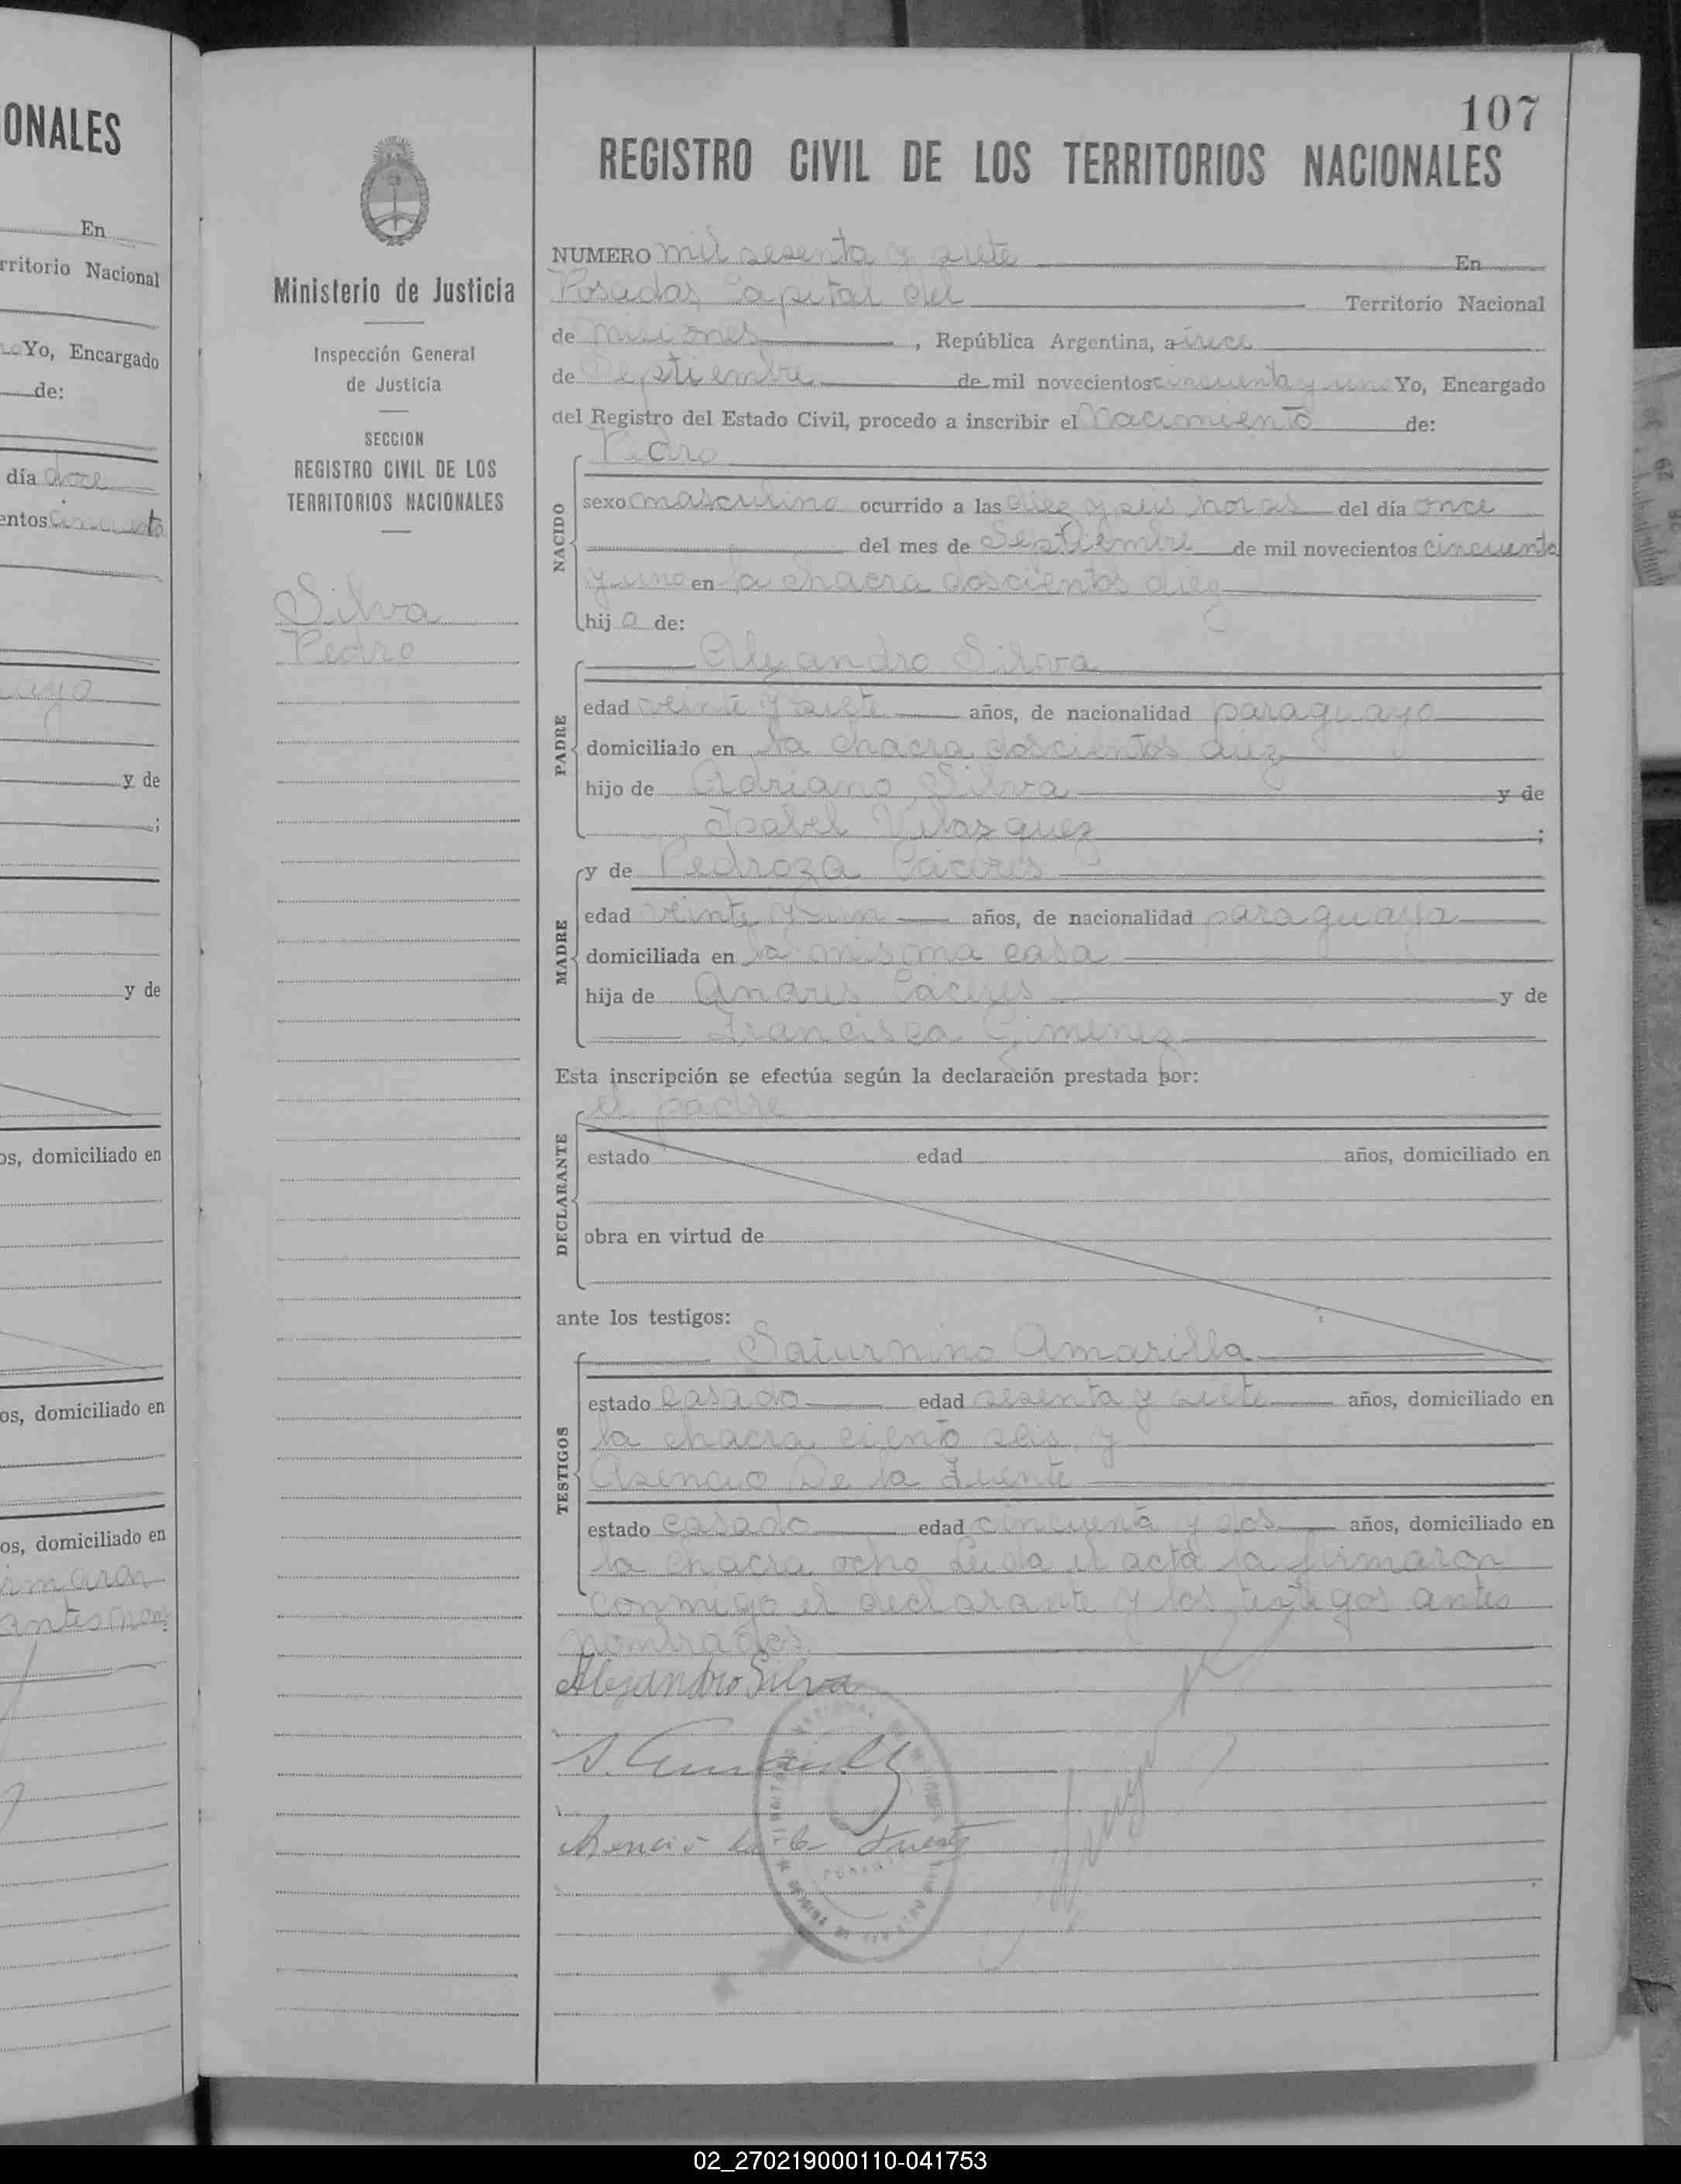 ONALES
En
rritorio Nacional
Yo, Encargado
de:
día doce
entos cincuenta
y de
;
y de
os, domiciliado en
os, domiciliado en
os, domiciliado en
antes
Ministerio de Justicia
Inspección General
de Justicia
SECCION
REGISTRO CIVIL DE LOS
TERRITORIOS NACIONALES
Silva
Pedro
107
REGISTRO CIVIL DE LOS TERRITORIOS NACIONALES
NUMERO mil sesenta y siete En
Posadas Capital del Territorio Nacional
de Misiones, República Argentina, a trece
de Septiembre de mil novecientos cincuenta y uno Yo, Encargado
del Registro del Estado Civil, procedo a inscribir el Nacimiento de:
NACIDO
Pedro
sexo masculino ocurrido a las diez y seis horas del día once
del mes de Septiembre de mil novecientos cincuenta
y uno en la chacra doscientos diez
hijo de:
PADRE
Alejandro Silva
edad veinte y siete años, de nacionalidad paraguayo
domiciliado en la chacra doscientos diez
hijo de Adriano Silva y de
Isabel Vilazquez ;
MADRE
y de Pedroza Cáceres
edad veinte y un años, de nacionalidad paraguaya
domiciliada en la misma casa
hija de Andres Cáceres y de
Francisca Gimenez
Esta inscripción se efectúa según la declaración prestada por:
DECLARANTE
el padre
estado edad años, domiciliado en
obra en virtud de
ante los testigos:
TESTIGOS
Saturnino Amarilla
estado casado edad sesenta y siete años, domiciliado en
la chacra ciento seis y
Asencio De la Fuente
estado casado edad cincuenta y dos años, domiciliado en
la chacra ocho Leida el acta la firmaron
conmigo el declarante y los testigos antes
nombrados
Alejandro Silva
S. Amarilla
Asencio de la Fuente
02_270219000110-041753